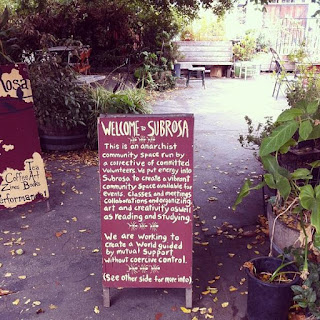 WELCOME to SUBROSA
This is an anarchist
community space run by
a collective of committed
volunteers. We put energy into
Subrosa to create a vibrant
community space available for
events, classes, and meetings,
collaborations and organizing,
art and creativity as well
as reading and studying.
We are working to
create a world guided
by mutual support
without coercive control.
(See other side for more info)
Rosa
Coffee Art
Zines Books
Performance